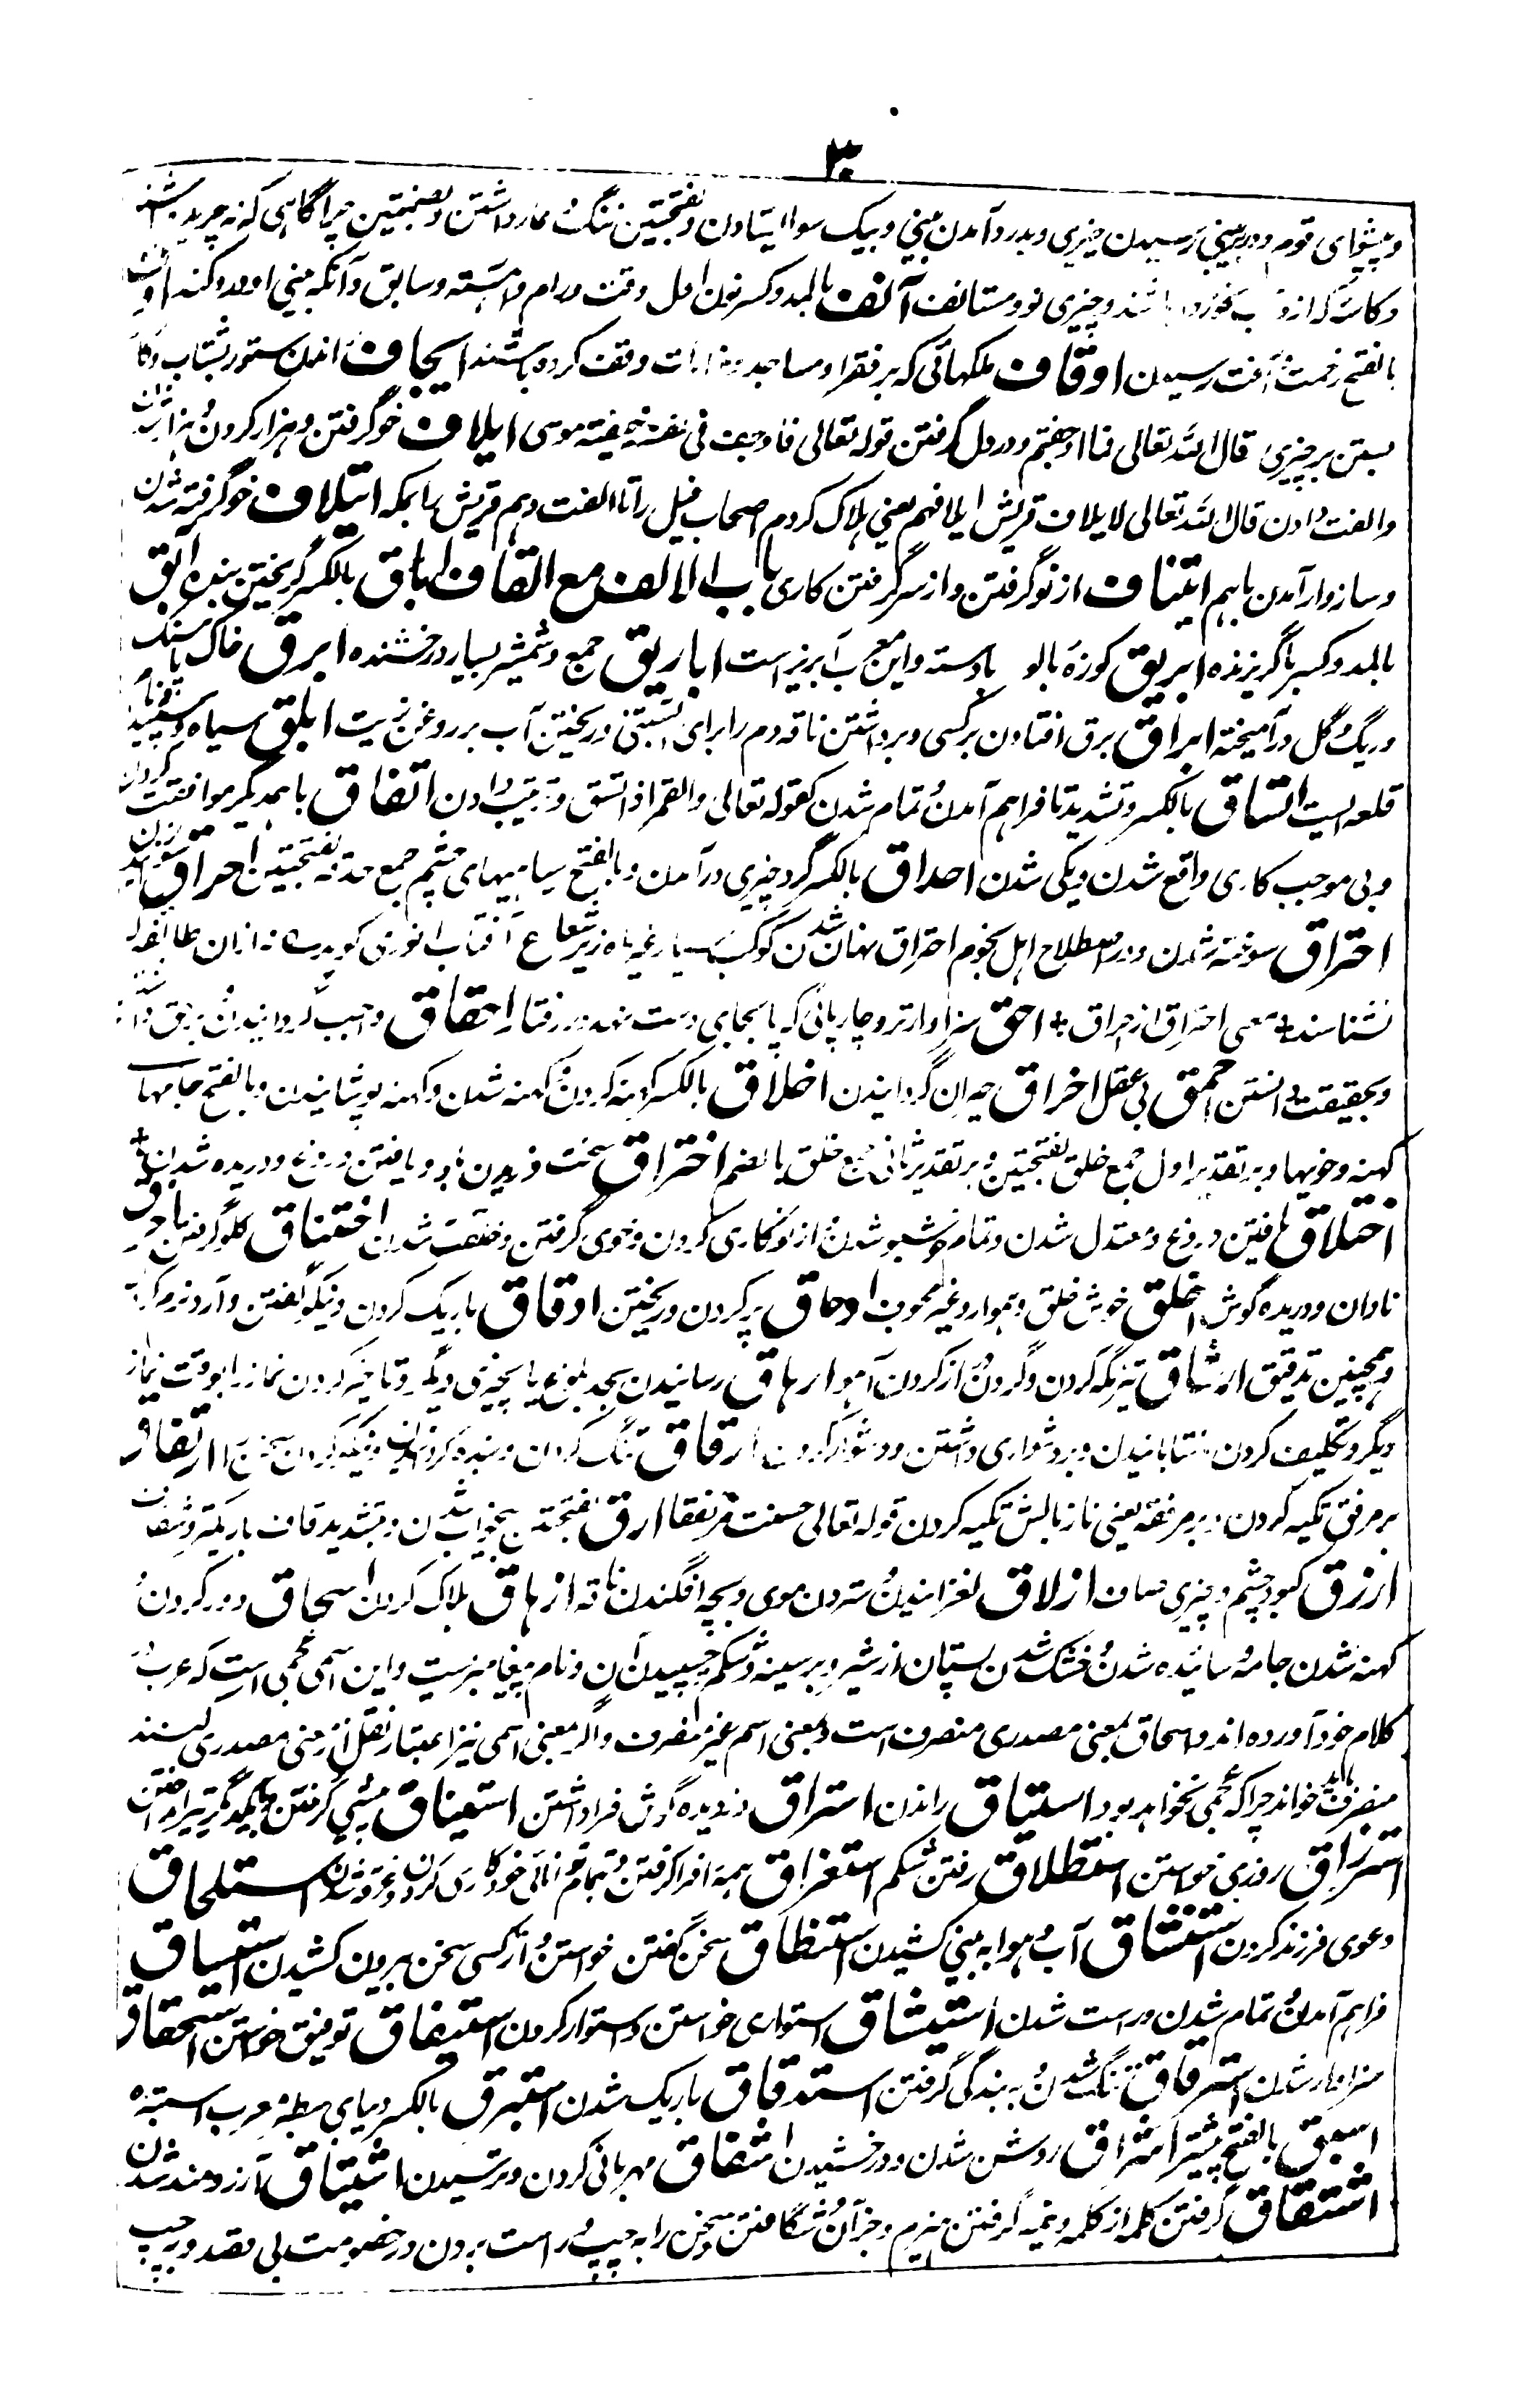 ۳۰
و پیشوای قوم و در بینی رسیدن چیزی و بدرد آمدن بینی و بیک سو ایستادن و بفتحتین ننگ و عار داشتن و بضمتین چراگاهی که نه چریده باشند
و کاسه که از و خورده باشند و چیزی نو و مستانف آنف بالمد و کسر نون اهل وقت و رام و آهسته و سابق و آنکه بینی او درد کند
بالفتح زحمت آفت رسیدن اوقاف ملکهائی که بر فقرا و مساجد و وقف کرده باشند ایجاف راندن ستور بشتاب و
بستن بر چیزی قال الله تعالی فما اوجفتم و در دل گرفتن قوله تعالی فاوجس فی نفسه خیفة موسی ایلاف خو گرفتن و هزار کردن و
و الفت دادن قال الله تعالی لایلاف قریش ایلافهم یعنی هلاک کردم اصحاب فیل را تا الفت دهم قریش را بمکه ایتلاف خو گرفته شدن
و سازوار آمدن باهم ایتناف از نو گرفتن و از سر گرفتن کاری باب الالف مع القاف اباق بالکسر گریختن بنده آبق
بالمد و کسر با گریزنده ابریق کوزهٔ با دسته و این معرب آبریز است اباریق جمع و شمشیر بسیار درخشنده ابرق خاک با سنگ
و ریگ و گل در آمیخته ابراق برق افتادن بر کسی و برداشتن ناقه دم را برای آبستنی و ریختن آب بر روغن زیت ابلق سیاه و سپید و نام
قلعه ایست اتساق بالکسر و تشدید تا فراهم آمدن و تمام شدن کقوله تعالی والقمر اذا اتسق و ترتیب دادن اتفاق با همدیگر موافقت کردن
و بی موجب کاری واقع شدن و یکی شدن احداق بالکسر گرد چیزی در آمدن و بالفتح سیاهیهای چشم جمع حدقه بفتحتین احراق سوزانیدن
احتراق سوخته شدن و در اصطلاح اهل نجوم احتراق نهان شدن کوکب سیاره غیر ماه زیر شعاع آفتاب انوری گوید
نشناسند معنی احتراق از حراق احق سزاوارتر و چارپائی که پا بجای دست نهد در رفتار احقاق واجب گردانیدن
و بحقیقت دانستن احمق بی عقل اخراق حیران گردانیدن اخلاق بالکسر کهنه کردن و کهنه شدن و کهنه پوشانیدن و بالفتح جامهای
کهنه و خویها و بر تقدیر اول جمع خلق بفتحتین و بر تقدیر ثانی جمع خلق بالضم اختراق سخت وزیدن باد و بافتن دروغ و دریده شدن
اختلاق بافتن دروغ و معتدل شدن و تمام و خوشبو شدن از نو کاری کردن و خوی گرفتن و خلقت شدن اختناق گلو گرفته
نادان و دریده گوش اخلق خوش خلق و هموار و غیر مجوف ادحاق پر کردن و ریختن ادقاق باریک کردن و نیکو گفتن و آرد نرم کردن
و همچنین تدقیق ارشاق تیز نگه کردن و گردن دراز کردن آهو ارهاق رسانیدن بحد بلوغ یا بچیزی دیگر و تاخیر کردن نماز را بوقت نماز
دیگر و تکلیف کردن و شتابانیدن و بر دشواری داشتن و دشوار کردن ارقاق تنک کردن و بنده گردانیدن و نیکو کردن سخن را ارتفاق
بر مرفق تکیه کردن و بر مرفقه یعنی نازبالش تکیه کردن قوله تعالی حسنت مرتفقا ارق بفتحتین بیخواب شدن و بتشدید قاف باریکتر و
ازرق کبود چشم و چیزی صاف ازلاق لغزانیدن و ستردن موی و بچه افگندن ناقه ازهاق هلاک کردن اسحاق دور کردن و
کهنه شدن جامه و سائیده شدن و خشک شدن پستان از شیر و بر سینه و شکم چسپیدن آن و نام پیغامبریست و این اسمی عجمی است که عرب در
کلام خود آورده اند و اسحاق بمعنی مصدری منصرف است و بمعنی اسم غیر منصرف و اگر معنی اسمی نیز اعتبار نقل از معنی مصدری کنند
منصرف باید خواند چرا که عجمی نخواهد بود استیاق راندن استراق دزدیده گوش فرا داشتن استباق پیشی گرفتن و با یکدیگر تیر انداختن
استرزاق روزی خواستن استطلاق رفتن شکم استغراق همه را فرا گرفتن و بتمام توانائی خود کاری کردن و غرق شدن استلحاق
دعوی فرزند کردن استنشاق آب و هوا به بینی کشیدن استنطاق سخن گفتن خواستن و از کسی سخن بیرون کشیدن استیساق
فراهم آمدن و تمام شدن و راست شدن استیثاق استواری خواستن و استوار کردن استیفاق توفیق خواستن استحقاق
سزاوار شدن استرقاق تنگ شدن و به بندگی گرفتن استدقاق باریک شدن استبرق بالکسر دیبای سطبر معرب استبره
اسبق بالفتح پیشتر اشراق روشن شدن و درخشیدن اشفاق مهربانی کردن و ترسیدن اشتیاق آرزومند شدن
اشتقاق گرفتن کلمه از کلمه و نیمه گرفتن هیزم و جز آن و شگافتن و سخن را به چپ و راست بردن در خصومت بی قصد و چپ